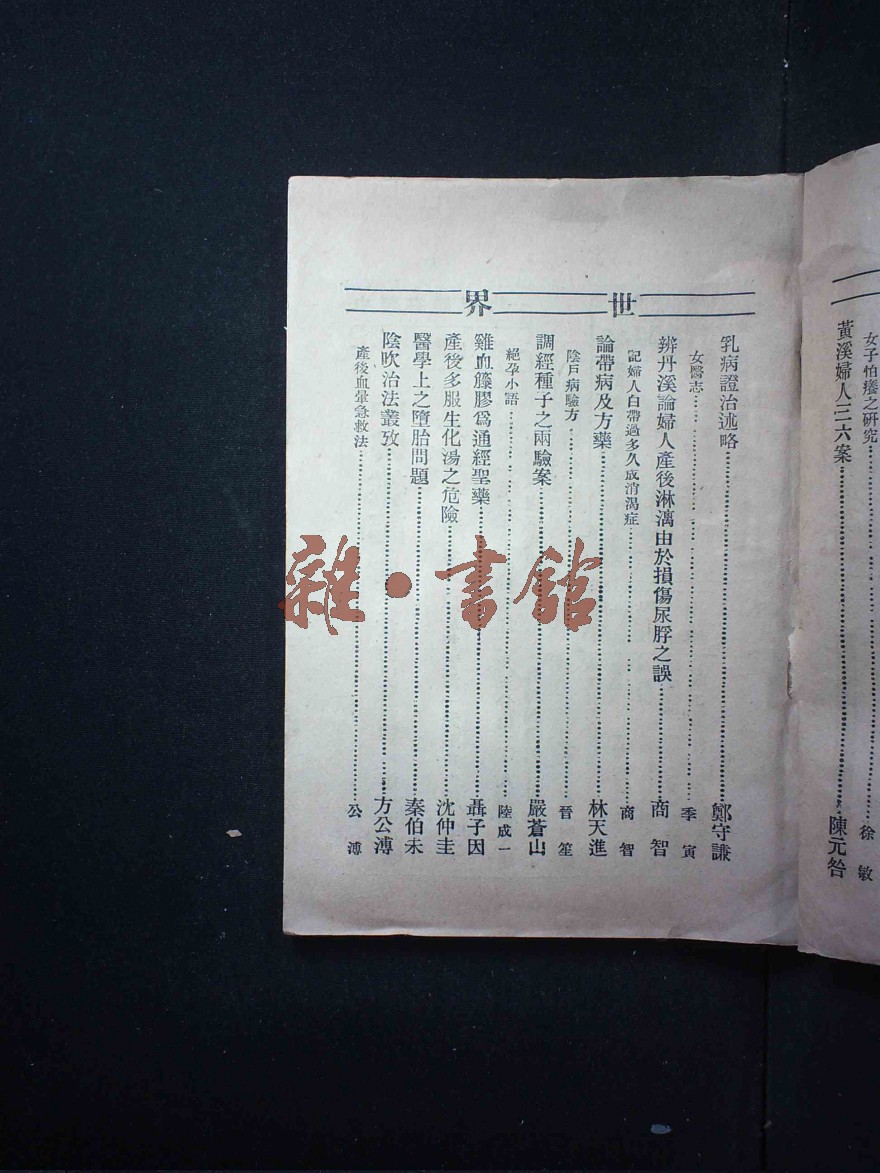 女子怕癢之研究……徐敏
黃溪婦人三六案……陳元咎
世界
乳病證治述略……鄭守謙
女醫志……季寅
辨丹溪論婦人產後淋漓由於損傷尿脬之誤……商智
記婦人白帶過多久成消渴症……商智
論帶病及方藥……林天進
陰戶病驗方……晉笙
調經種子之兩驗案……嚴蒼山
絕孕小語……陸成一
雞血籐膠爲通經聖藥……聶子因
產後多服生化湯之危險……沈仲圭
醫學上之墮胎問題……秦伯未
陰吹治法叢攷……方公溥
產後血暈急救法……公溥
雜·書館